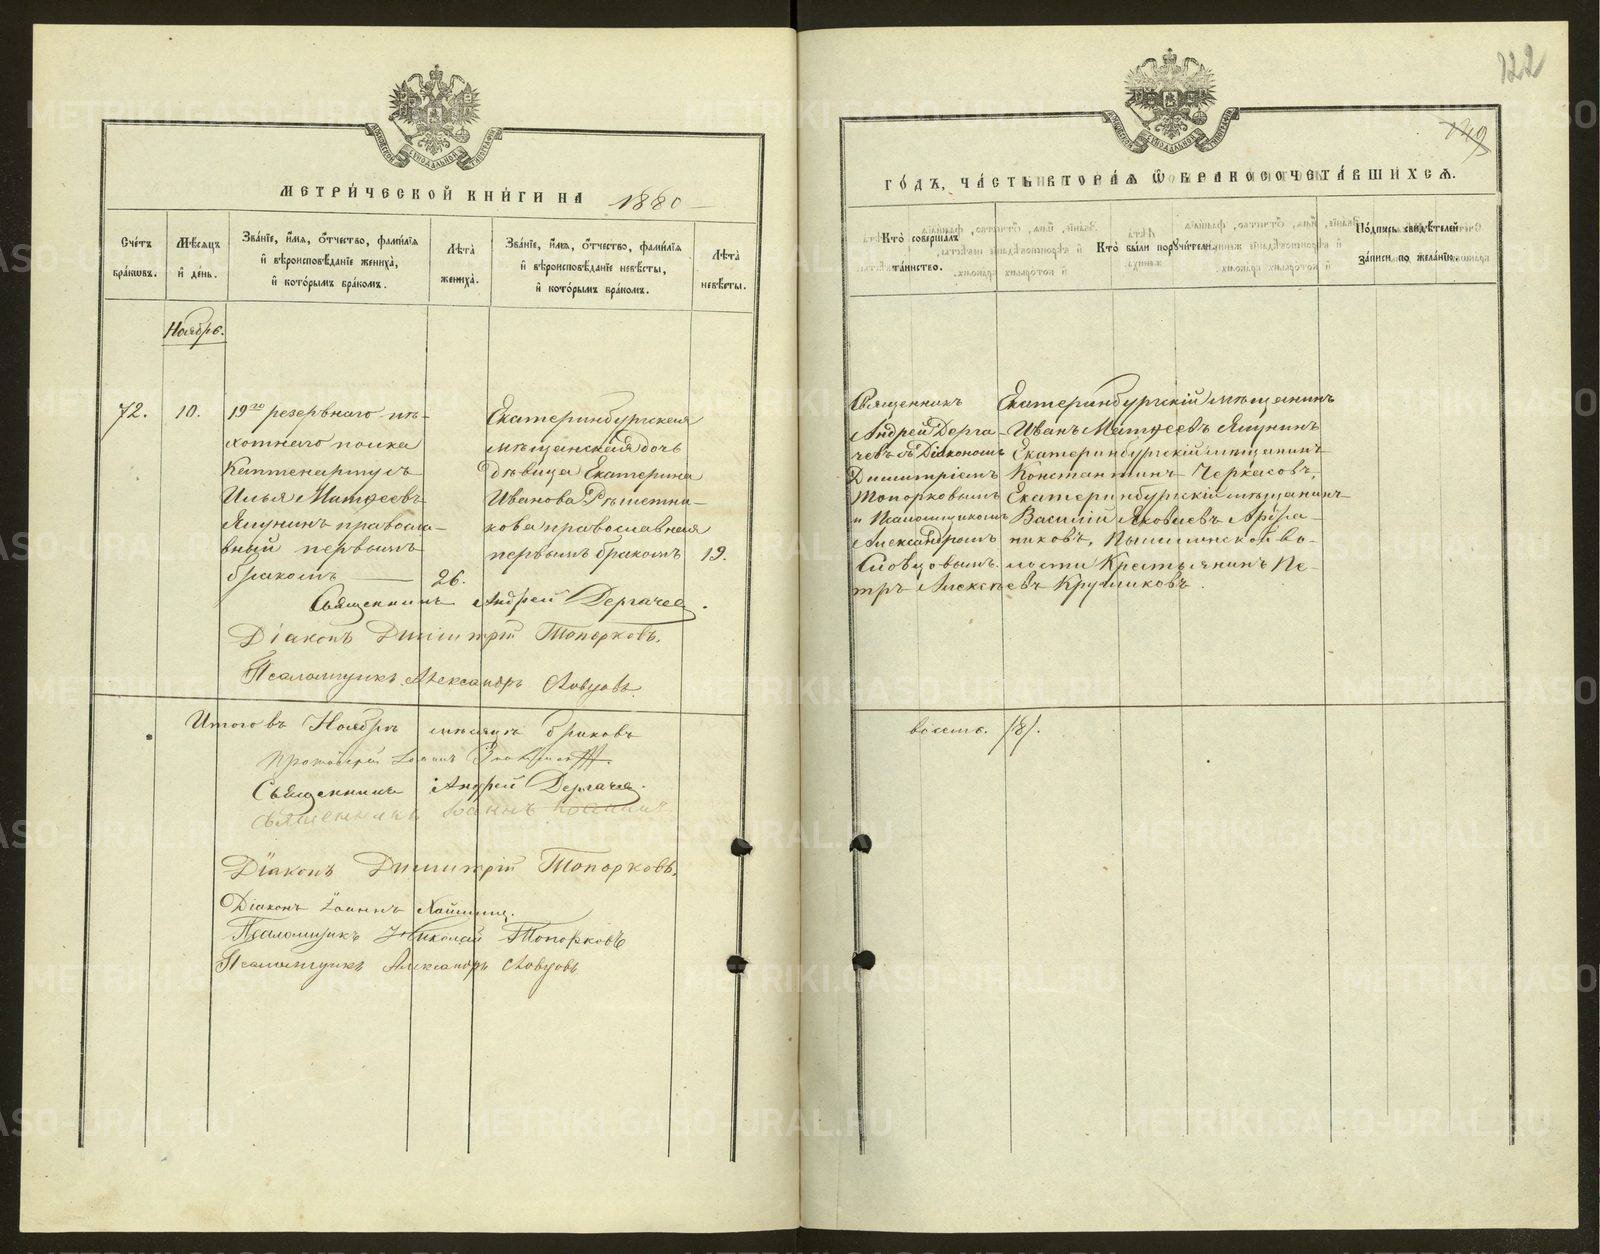 МЕТРИ́ЧЕСКОЙ КНИ́ГИ НА 1880
Сче́тъ бра́кѡвъ.
Мѣ́сяцъ и́ де́нь.
Зва́нїе, и́мѧ, о́тчество, фами́лїѧ и́ вѣроисповѣ́данїе жениха̀, и́ кото́рымъ бра́комъ.
Лѣ́та жениха̀.
Зва́нїе, и́мѧ, о́тчество, фами́лїѧ и́ вѣроисповѣ́данїе невѣ́сты, и́ кото́рымъ бра́комъ.
Лѣ́та невѣ́сты.
Ноябрь.
72.
10.
19го резервнаго пѣ-
хотнаго полка
Каптенармусъ
Илья Матѳеевъ
Ялунинъ правосла-
вный первымъ
бракомъ
26.
Екатеринбургская
мѣщанская дочь
дѣвица Екатерина
Иванова Рѣшетни-
кова православная
первымъ бракомъ
19.
Священникъ Андрей Дергачев.
Діаконъ Димитрій Топорковъ.
Псаломщикъ Александръ Словцовъ.
Итого въ Ноябрѣ мѣсяцѣ браковъ
Священникъ Андрей Дергачев.
Священникъ Іоаннъ
Діаконъ Димитрій Топорковъ.
Діаконъ Іоаннъ
Псаломщикъ Николай Топорковъ
Псаломщикъ Александръ Словцовъ
122
149
ГО́ДЪ, ЧА́СТЬ ВТОРА́Ѧ Ѡ БРАКОСОЧЕТА́ВШИХСѦ.
Кто̀ соверша́лъ та́инство.
Кто̀ бы́ли порꙋчи́тели.
По́дпись свидѣ́телей за́писи по жела́нїю.
Священникъ
Андрей Дерга-
чевъ съ Діакономъ
Димитріемъ
Топорковымъ
и Псаломщикомъ
Александромъ
Словцовымъ.
Екатеринбургскій мѣщанинъ
Иванъ Матѳеевъ Ялунинъ
Екатеринбургскій мѣщанинъ
Константинъ Черкасовъ,
Екатеринбургскій мѣщанинъ
Василій Яковлевъ
никовъ, Пышминской во-
лости Крестьянинъ Пе-
тръ Алексѣевъ Кругликовъ.
восемь. /8/.
METRIKI.GASO-URAL.RU